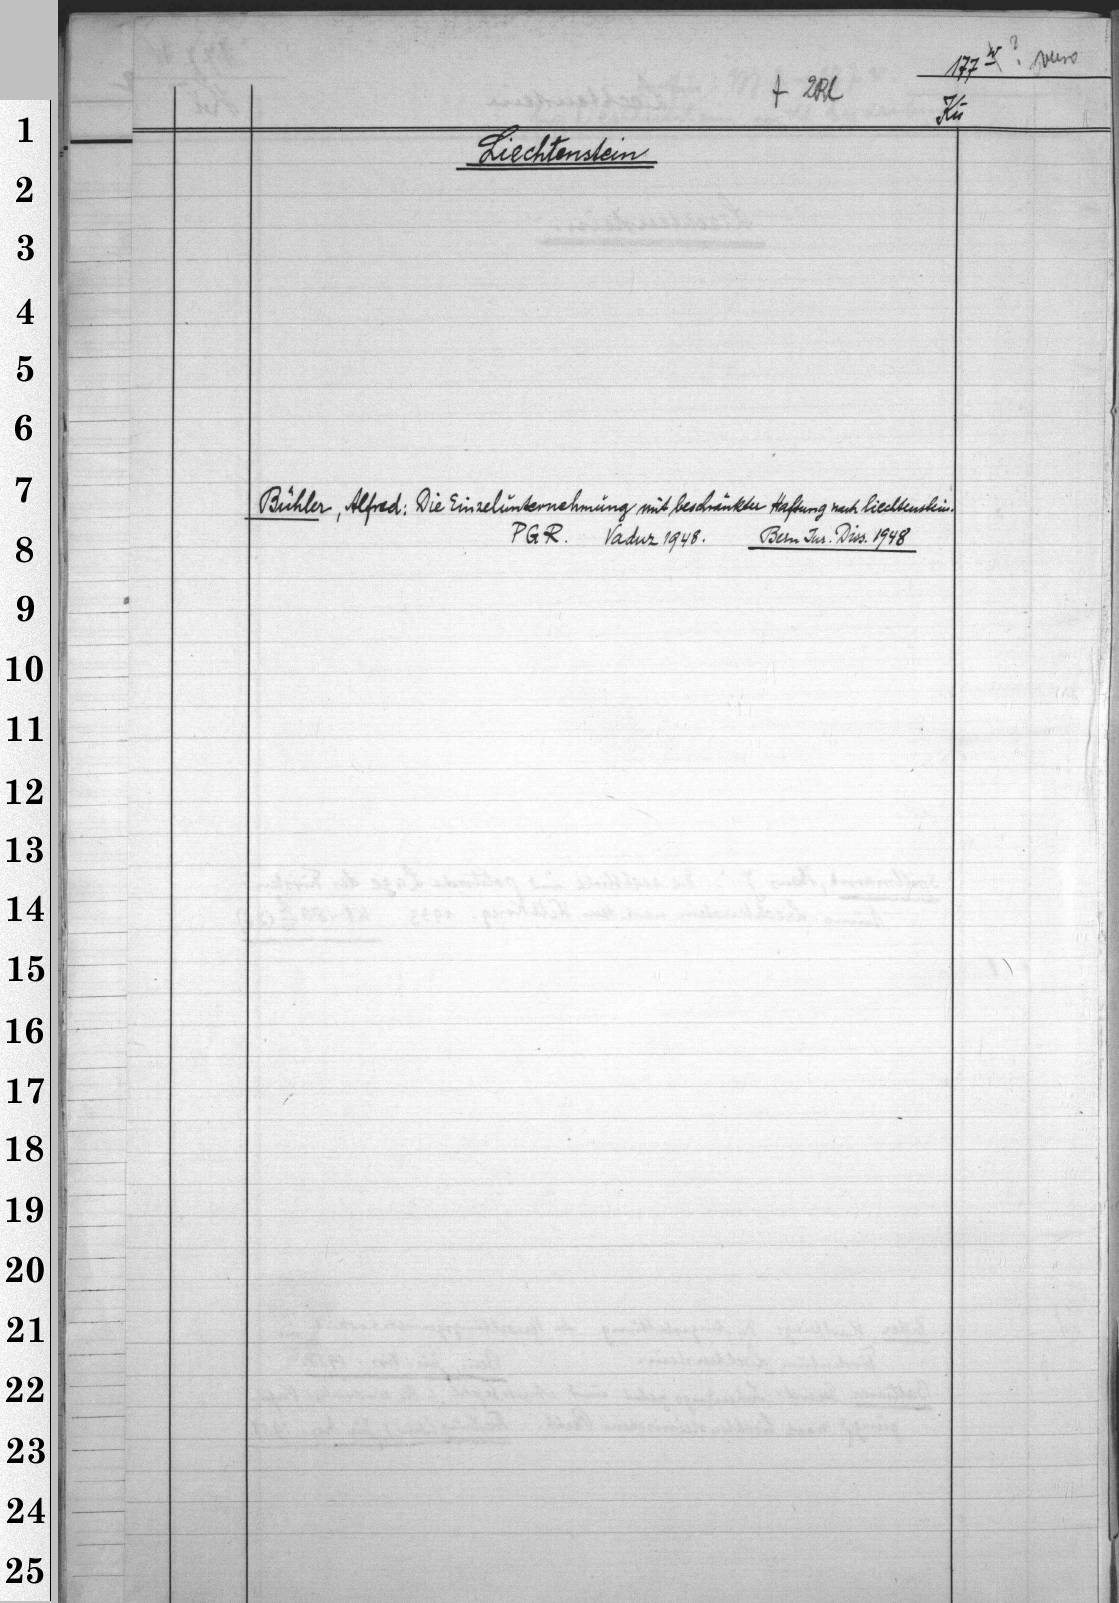 177 w ?
+ 2Rl
Kü
Liechtenstein
Bühler, Alfred: Die Einzelunternehmung mit beschränkter Haftung nach liechtenstein.
PGR. Vaduz 1948. Bern Jur. Diss. 1948
1
2
3
4
5
6
7
8
9
10
11
12
13
14
15
16
17
18
19
20
21
22
23
24
25